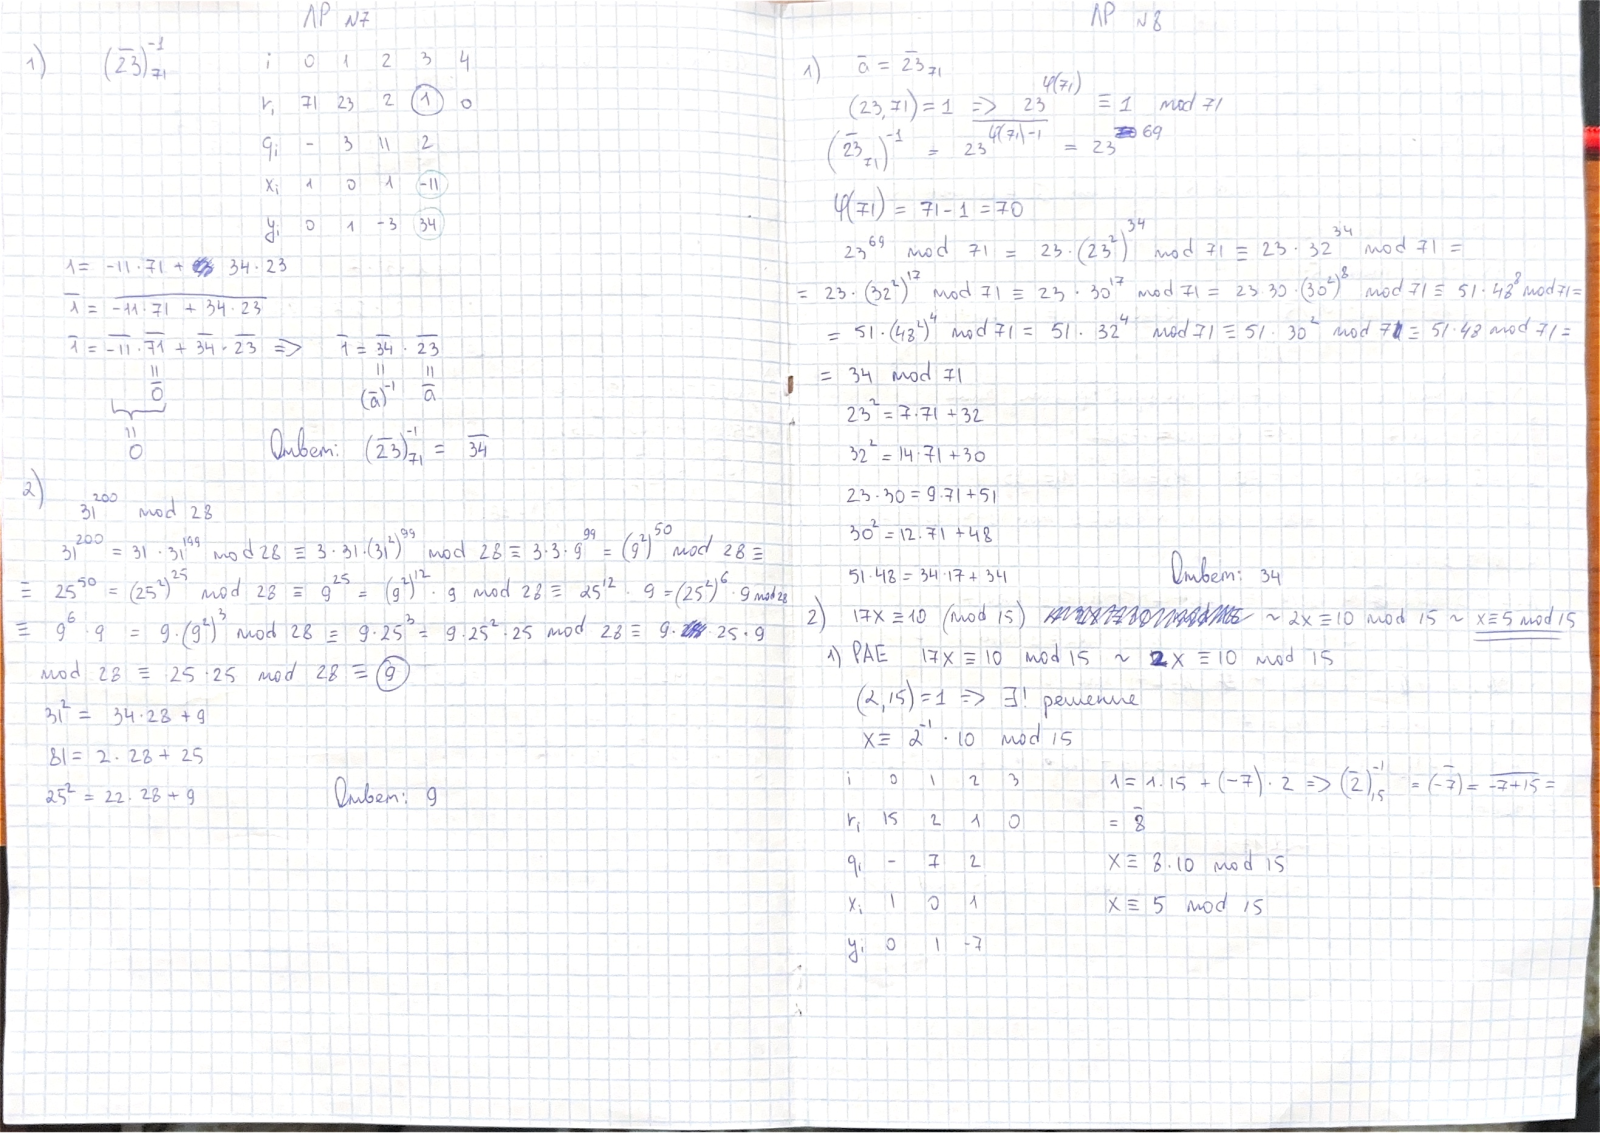 ЛР №7
1) (2̄3̄)⁻¹₇₁
i 0 1 2 3 4
rᵢ 71 23 2 1 0
qᵢ - 3 11 2
xᵢ 1 0 1 -11
yᵢ 0 1 -3 34
1 = -11·71 + 34·23
1̄ = \overline{-11·71 + 34·23}
1̄ = \overline{-11}·\overline{71} + \overline{34}·\overline{23} => 1̄ = \overline{34}·\overline{23}
" " "
0̄ (ā)⁻¹ ā
"
0 Ответ: (\overline{23})⁻¹₇₁ = \overline{34}
2)
31²⁰⁰ mod 28
31²⁰⁰ = 31·31¹⁹⁹ mod 28 ≡ 3·31·(31²)⁹⁹ mod 28 ≡ 3·3·9⁹⁹ = (9²)⁵⁰ mod 28 ≡
≡ 25⁵⁰ = (25²)²⁵ mod 28 ≡ 9²⁵ = (9²)¹²·9 mod 28 ≡ 25¹²·9 = (25²)⁶·9 mod 28
≡ 9⁶·9 = 9·(9²)³ mod 28 ≡ 9·25³ = 9·25²·25 mod 28 ≡ 9·25·9
mod 28 ≡ 25·25 mod 28 ≡ 9
31² = 34·28+9
81 = 2·28+25
25² = 22·28+9 Ответ: 9
ЛР №8
1) ā = \overline{23}₇₁
(23,71)=1 => 23^{φ(71)} ≡ 1 mod 71
(\overline{23}₇₁)⁻¹ = \overline{23^{φ(71)-1}} = 23⁶⁹
φ(71) = 71-1 = 70
23⁶⁹ mod 71 = 23·(23²)³⁴ mod 71 ≡ 23·32³⁴ mod 71 =
= 23·(32²)¹⁷ mod 71 ≡ 23·30¹⁷ mod 71 = 23·30·(30²)⁸ mod 71 ≡ 51·48⁸ mod 71 =
= 51·(48²)⁴ mod 71 = 51·32⁴ mod 71 ≡ 51·30² mod 71 ≡ 51·48 mod 71 =
= 34 mod 71
23² = 7·71+32
32² = 14·71+30
23·30 = 9·71+51
30² = 12·71+48
51·48 = 34·17+34 Ответ: 34
2) 17x ≡ 10 (mod 15) ~ 2x ≡ 10 mod 15 ~ x ≡ 5 mod 15
1) РАЕ 17x ≡ 10 mod 15 ~ 2x ≡ 10 mod 15
(2,15)=1 => ∃! решение
x ≡ 2⁻¹·10 mod 15
i 0 1 2 3 1 = 1·15 + (-7)·2 => (2̄)⁻¹₁₅ = (\overline{-7}) = \overline{-7+15} =
rᵢ 15 2 1 0 = 8̄
qᵢ - 7 2 x ≡ 8·10 mod 15
xᵢ 1 0 1 x ≡ 5 mod 15
yᵢ 0 1 -7